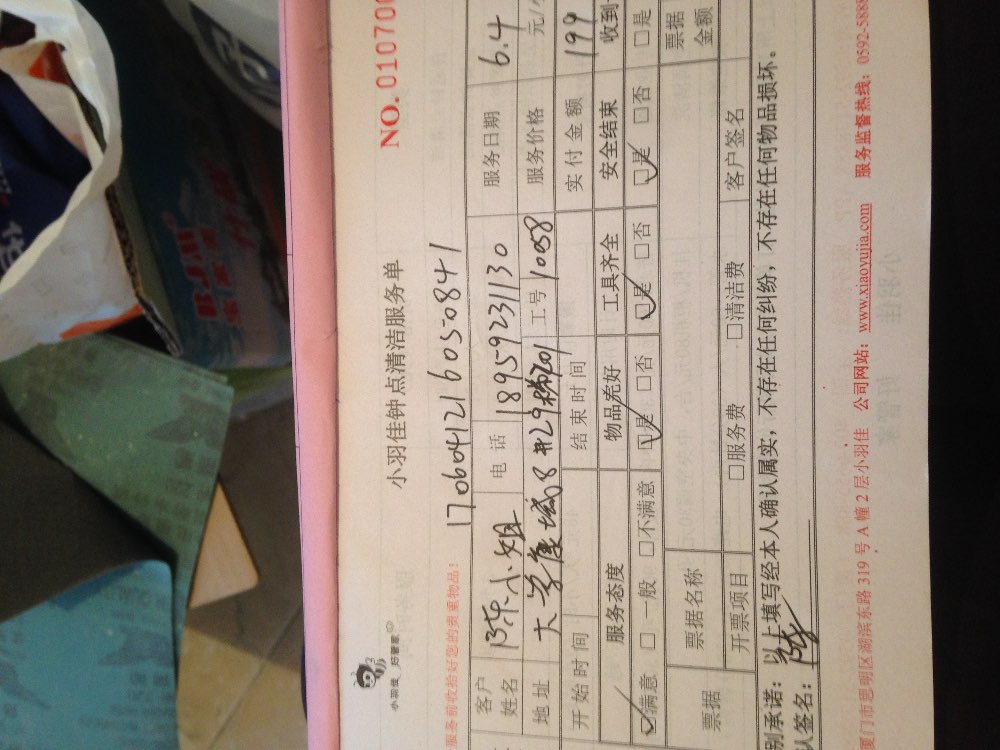 小羽佳 好管家
小羽佳钟点清洁服务单
NO. 010700
服务前收拾好您的贵重物品!
170604121605050841
客户姓名 陈小姐 电话 18959231130 服务日期 6.4
地址 大学康城8#29梯701 工号 1058 服务价格 元/
开始时间 结束时间 实付金额 199
服务态度 物品完好 工具齐全 安全结束 收到
☑满意 □一般 □不满意 ☑是 □否 ☑是 □否 ☑是 □否 □是
票据 票据名称 票据金额
开票项目 □服务费 □清洁费 客户签名
别承诺:以上填写经本人确认属实,不存在任何纠纷,不存在任何物品损坏。
认签名:陈
厦门市思明区湖滨东路 319 号 A 幢 2 层小羽佳 公司网站:www.xiaoyujia.com 服务监督热线:0592-5888